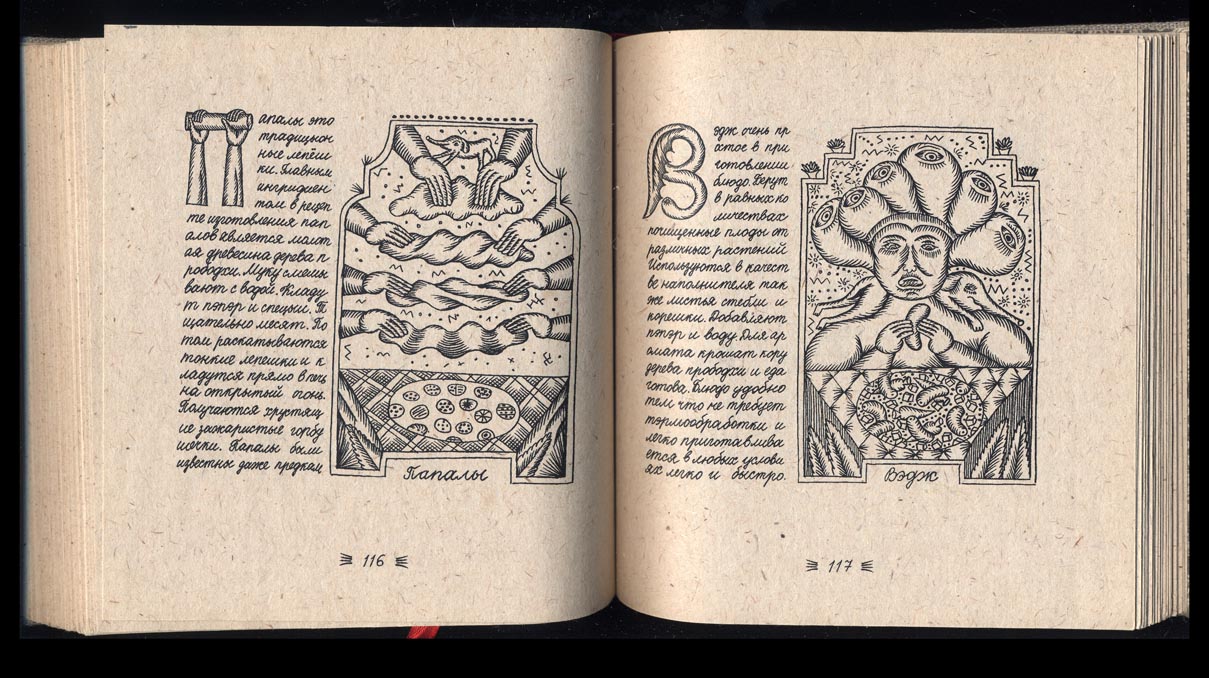 Папалы это
традицион
ные лепёш
ки. Главным
ингридиен
том в рецеп
те изготовления пап
алов является молот
ая древесина дерева п
рободхи. Муку смеши
вают с водой. Кладу
т пэпэр и специи. Т
щательно месят. По
том раскатываются
тонкие лепешки и к
ладутся прямо в печь
на открытый огонь.
Получаются хрустящ
ие зажаристые горбу
шечки. Папалы были
известны даже предкам
Папалы
116
Вэдж очень пр
остое в при
готовлении
блюдо. Берут
в равных ко
личествах
почищенные плоды от
различных растений
Используются в качест
ве наполнителя так
же листья стебли и
корешки. Добавляют
пэпэр и воду. Для ар
омата крошат кору
дерева прободхи и еда
готова. Блюдо удобно
тем что не требует
тэрмообработки и
легко приготавлива
ется в любых услови
ях легко и быстро.
Вэдж
117